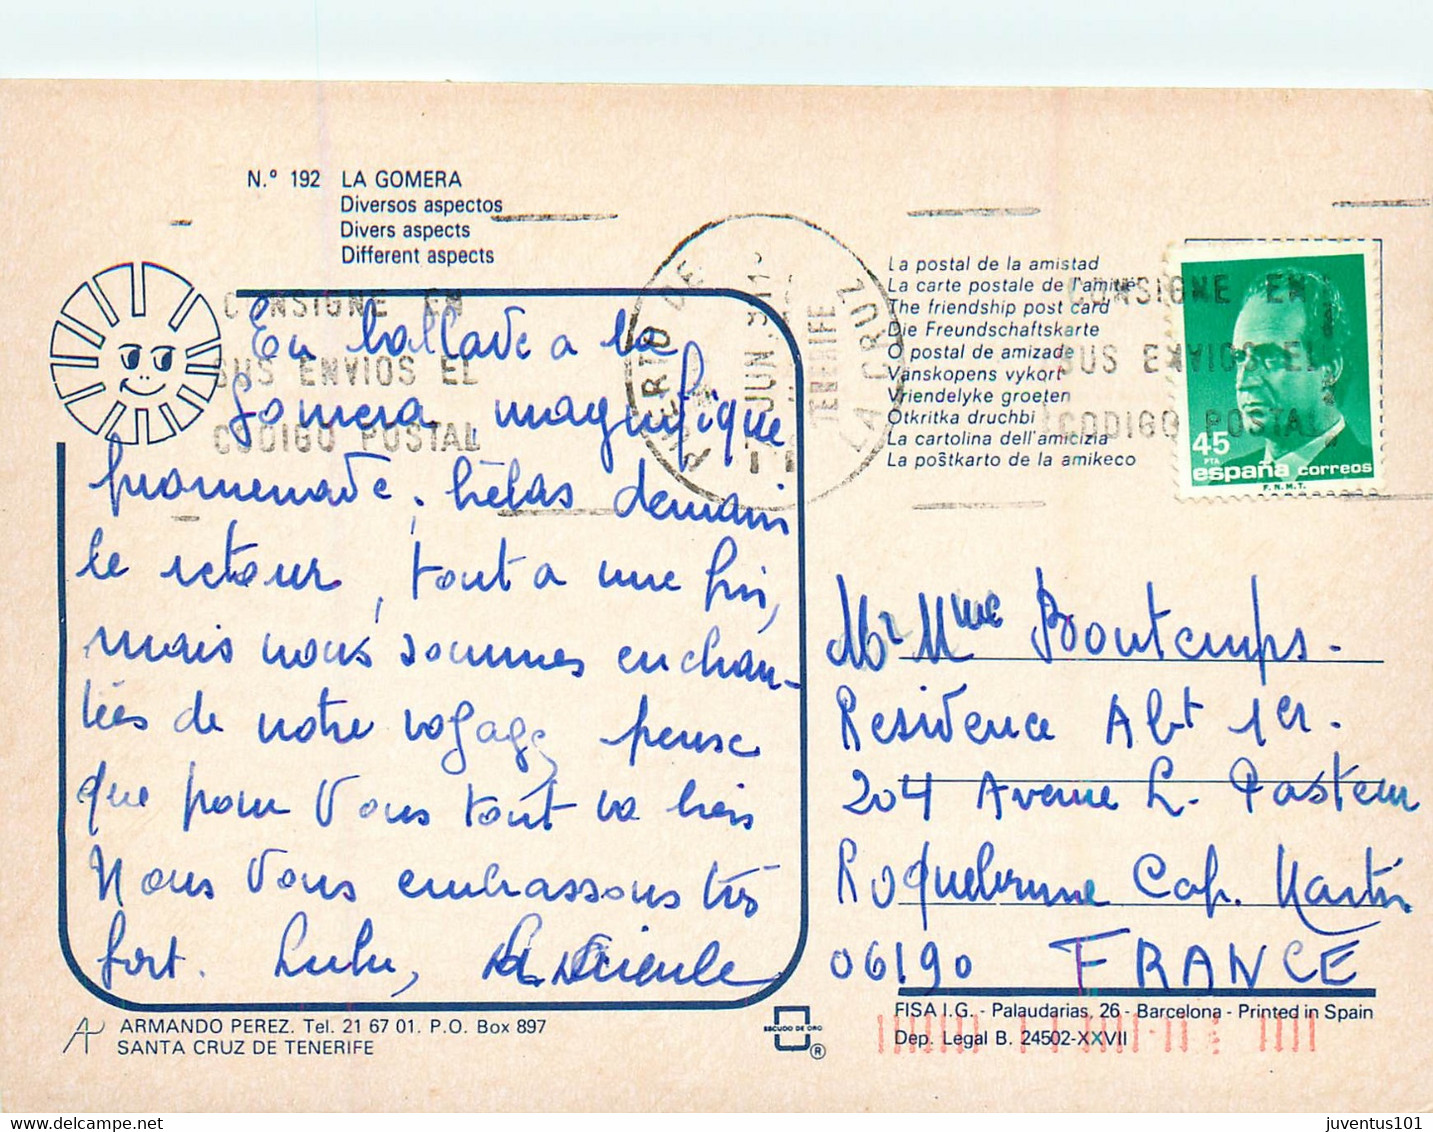 N.º 192 LA GOMERA
Diversos aspectos
Divers aspects
Different aspects
CONSIGNE EN
SUS ENVIOS EL
CODIGO POSTAL
PUERTO DE
LA CRUZ
TENERIFE
JUN
La postal de la amistad
La carte postale de l'amitié
The friendship post card
Die Freundschaftskarte
O postal de amizade
Vänskopens vykort
Vriendelyke groeten
Otkritka druchbi
La cartolina dell'amicizia
La poŝtkarto de la amikeco
CONSIGNE EN
SUS ENVIOS EL
CODIGO POSTAL
45
PTA
españa correos
F.N.M.T.
En ballade a la
Gomera, magnifique
promenade, hélas demain
le retour, tout a une fin,
mais nous sommes enchan-
tées de notre voyage, pense
que pour Vous tout va bien
Nous Vous embrassons très
fort. Lulu,
Mr Mme Bontemps.
Residence Albt 1er.
204 Avenue L. Pasteur
Roquebrune Cap. Martin
06190 FRANCE
ARMANDO PEREZ. Tel. 21 67 01. P.O. Box 897
SANTA CRUZ DE TENERIFE
ESCUDO DE ORO
®
FISA I.G. - Palaudarias, 26 - Barcelona - Printed in Spain
Dep. Legal B. 24502-XXVII
juventus101